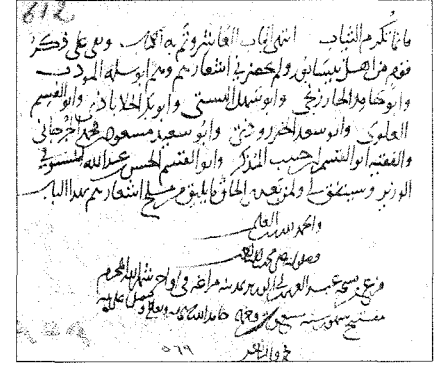 612
فانما تكرم الشباب انتهى الباب العاشر وتم به الكتاب وبقي علي ذكر
قوم من اهل نيسابور ولم يحضرني اشعارهم ومنهم ابو سلمة المودب
وابو حامد الخارزنجي وابو سهل البستي وابو بكر الجلاباذي وابو القسم
العلوي وابو سعد الخزروذي وابو سعيد مسعود بن محمد الجرجاني
والفقيه ابو القسم بن حبيب المذكر وابو القسم الحسن بن عبد الله المستوفي
الوزير وسيتفق لي او لمن بعدي الحاق ما يليق من ملح اشعارهم بهذا الباب
والحمد لله رب العالمين
وصلواته على محمد
فرغ من نسخه عبد بمدينة مراغة في اواخر شهر الله المحرم
مفتتح سنة حامدا لله
٥٦٩